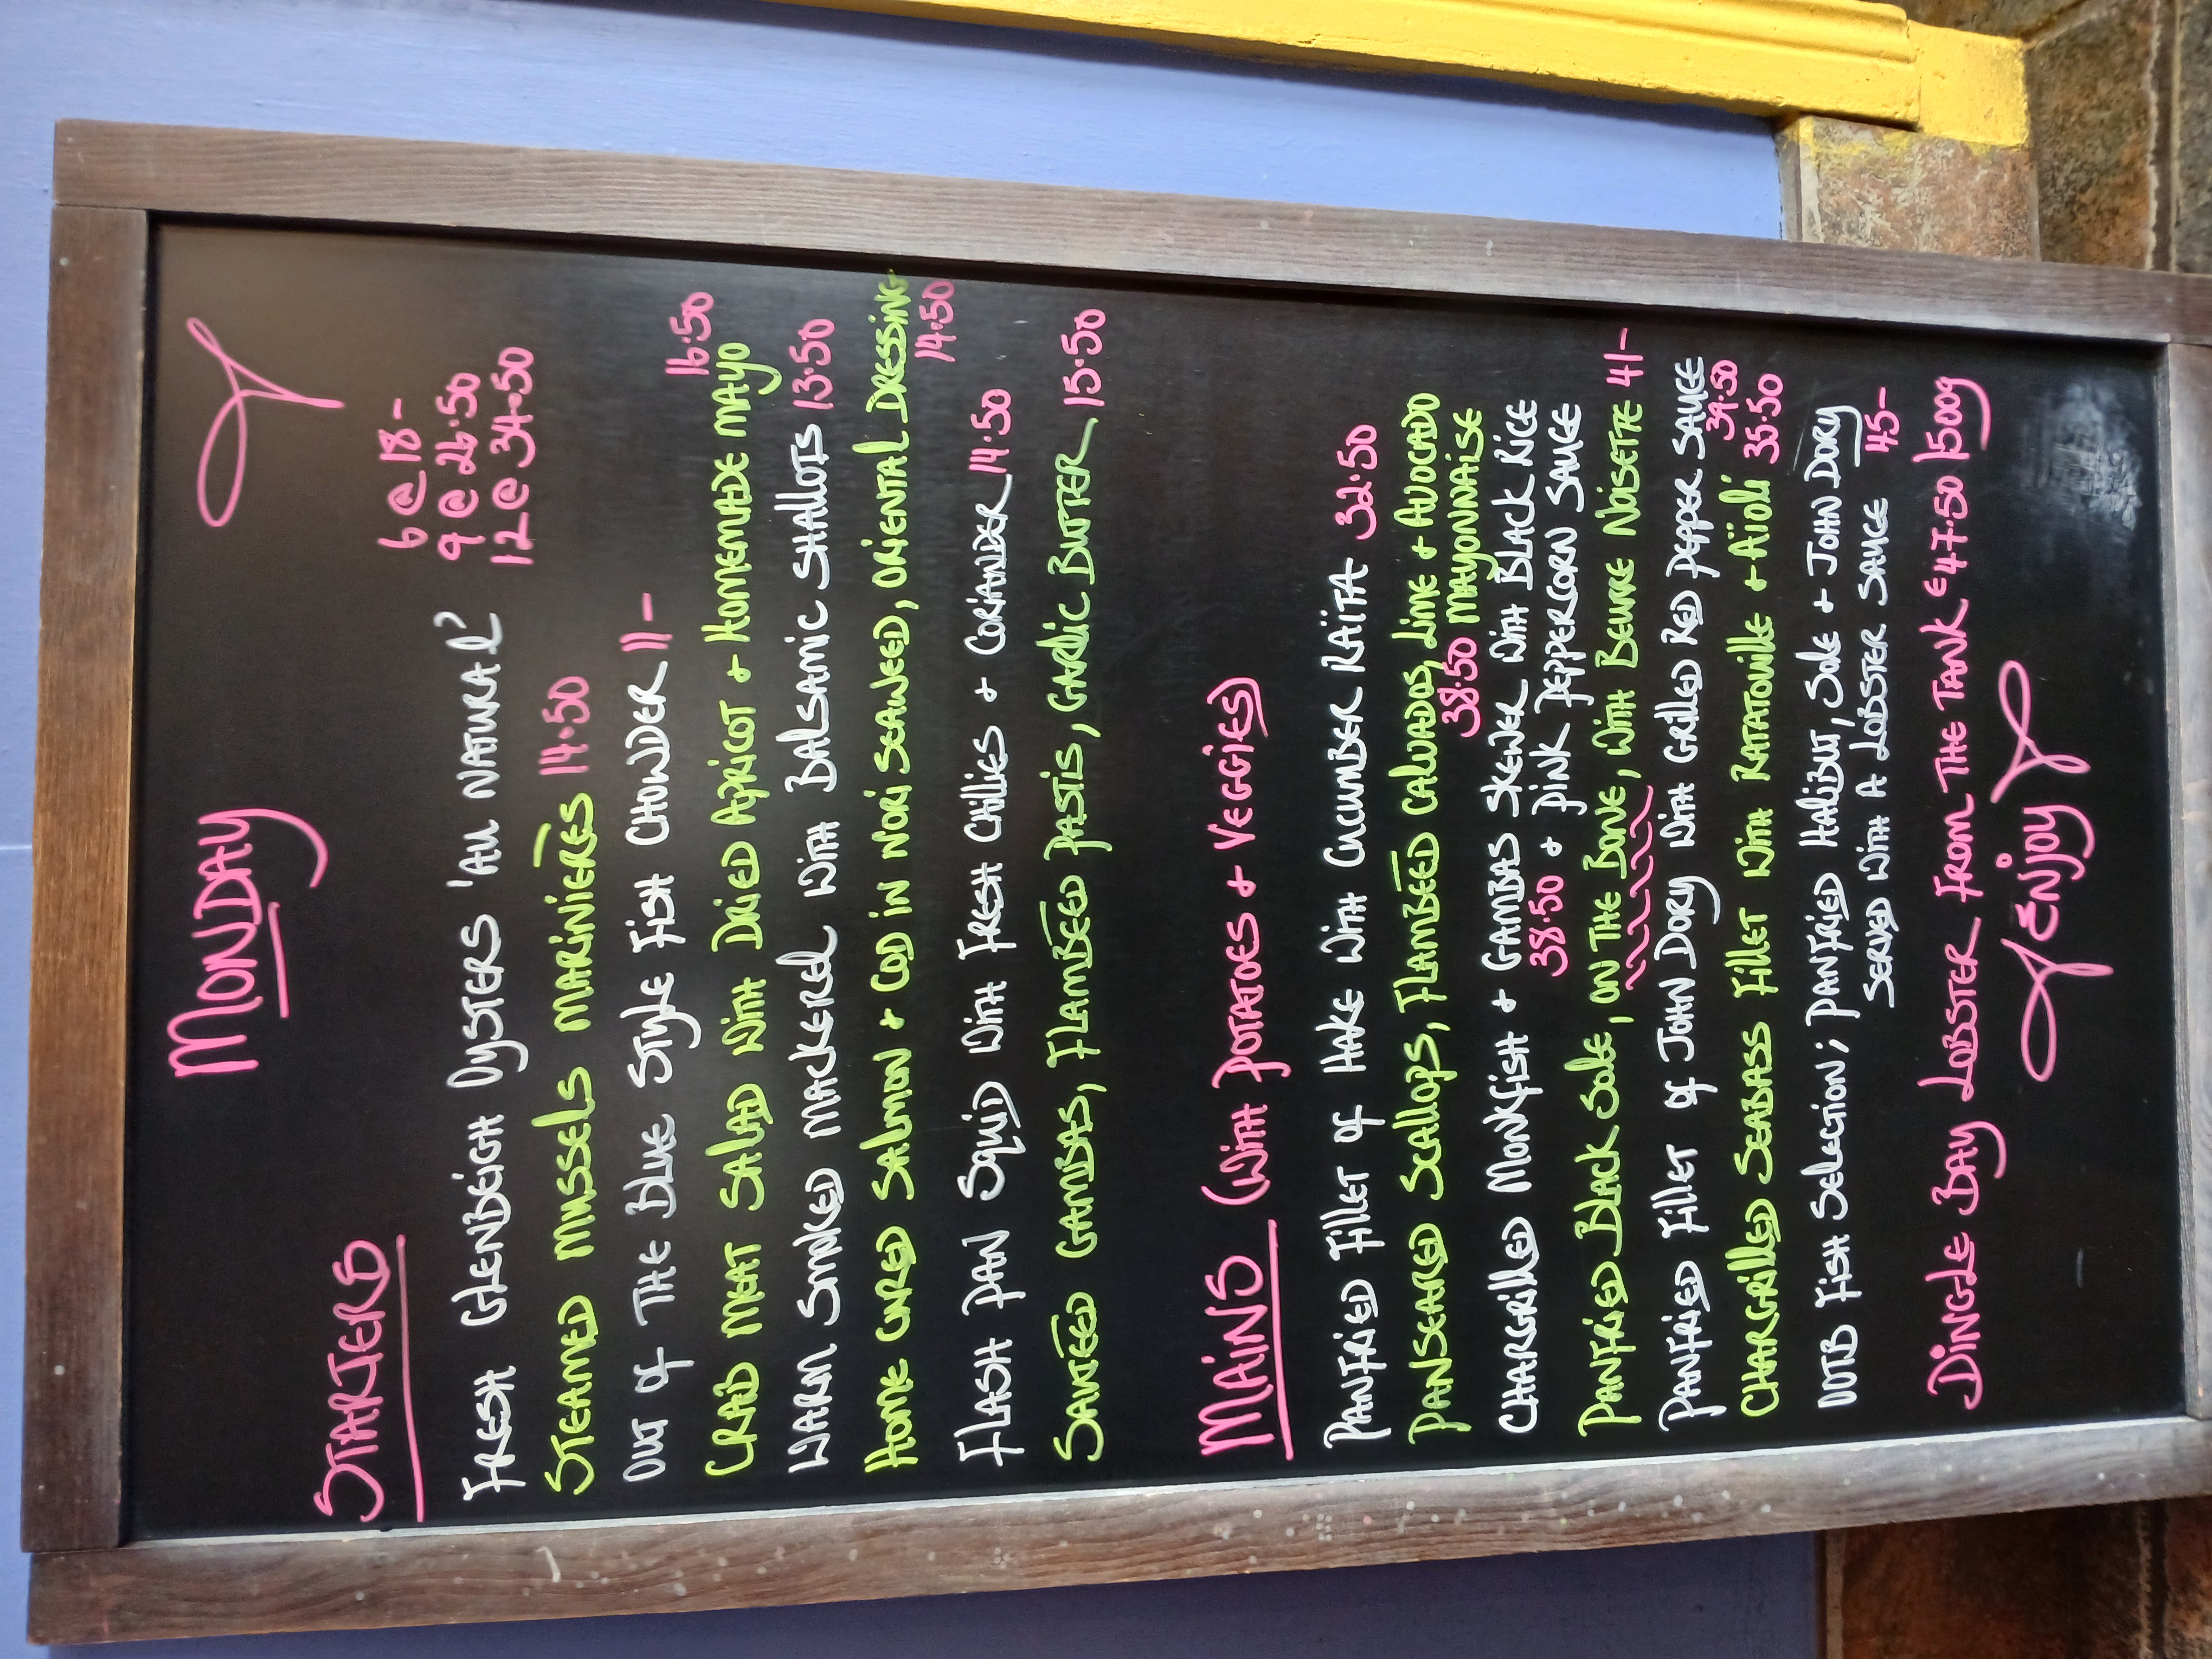 MONDAY
STARTERS
6 @ 18-
9 @ 26.50
FRESH GLENBEIGH OYSTERS 'AU NATURAL' 12 @ 34.50
STEAMED MUSSELS MARINIERES 14.50
OUT OF THE BLUE STYLE FISH CHOWDER 11-
16.50
CRAB MEAT SALAD WITH DRIED APRICOT + HOMEMADE MAYO
WARM SMOKED MACKEREL WITH BALSAMIC SHALLOTS 13.50
HOME CURED SALMON + COD IN NORI SEAWEED, ORIENTAL DRESSING
14.50
FLASH PAN SQUID WITH FRESH CHILLIES + CORIANDER 14.50
SAUTÉED GAMBAS, FLAMBÉED PASTIS, GARLIC BUTTER 15.50
MAINS (WITH POTATOES + VEGGIES)
PANFRIED FILLET OF HAKE WITH CUCUMBER RAÏTA 32.50
PANSEARED SCALLOPS, FLAMBÉED CALVADOS, LIME + AVOCADO
38.50 MAYONNAISE
CHARGRILLED MONKFISH + GAMBAS SKEWER WITH BLACK RICE
38.50 + PINK PEPPERCORN SAUCE
PANFRIED BLACK SOLE, ON THE BONE, WITH BEURRE NOISETTE 41-
PANFRIED FILLET OF JOHN DORY WITH GRILLED RED PEPPER SAUCE
39.50
CHARGRILLED SEABASS FILLET WITH RATATOUILLE + AÏOLI 35.50
OOTB FISH SELECTION; PANFRIED HALIBUT, SOLE + JOHN DORY
SERVED WITH A LOBSTER SAUCE 45-
DINGLE BAY LOBSTER FROM THE TANK €47.50/500g
ENJOY